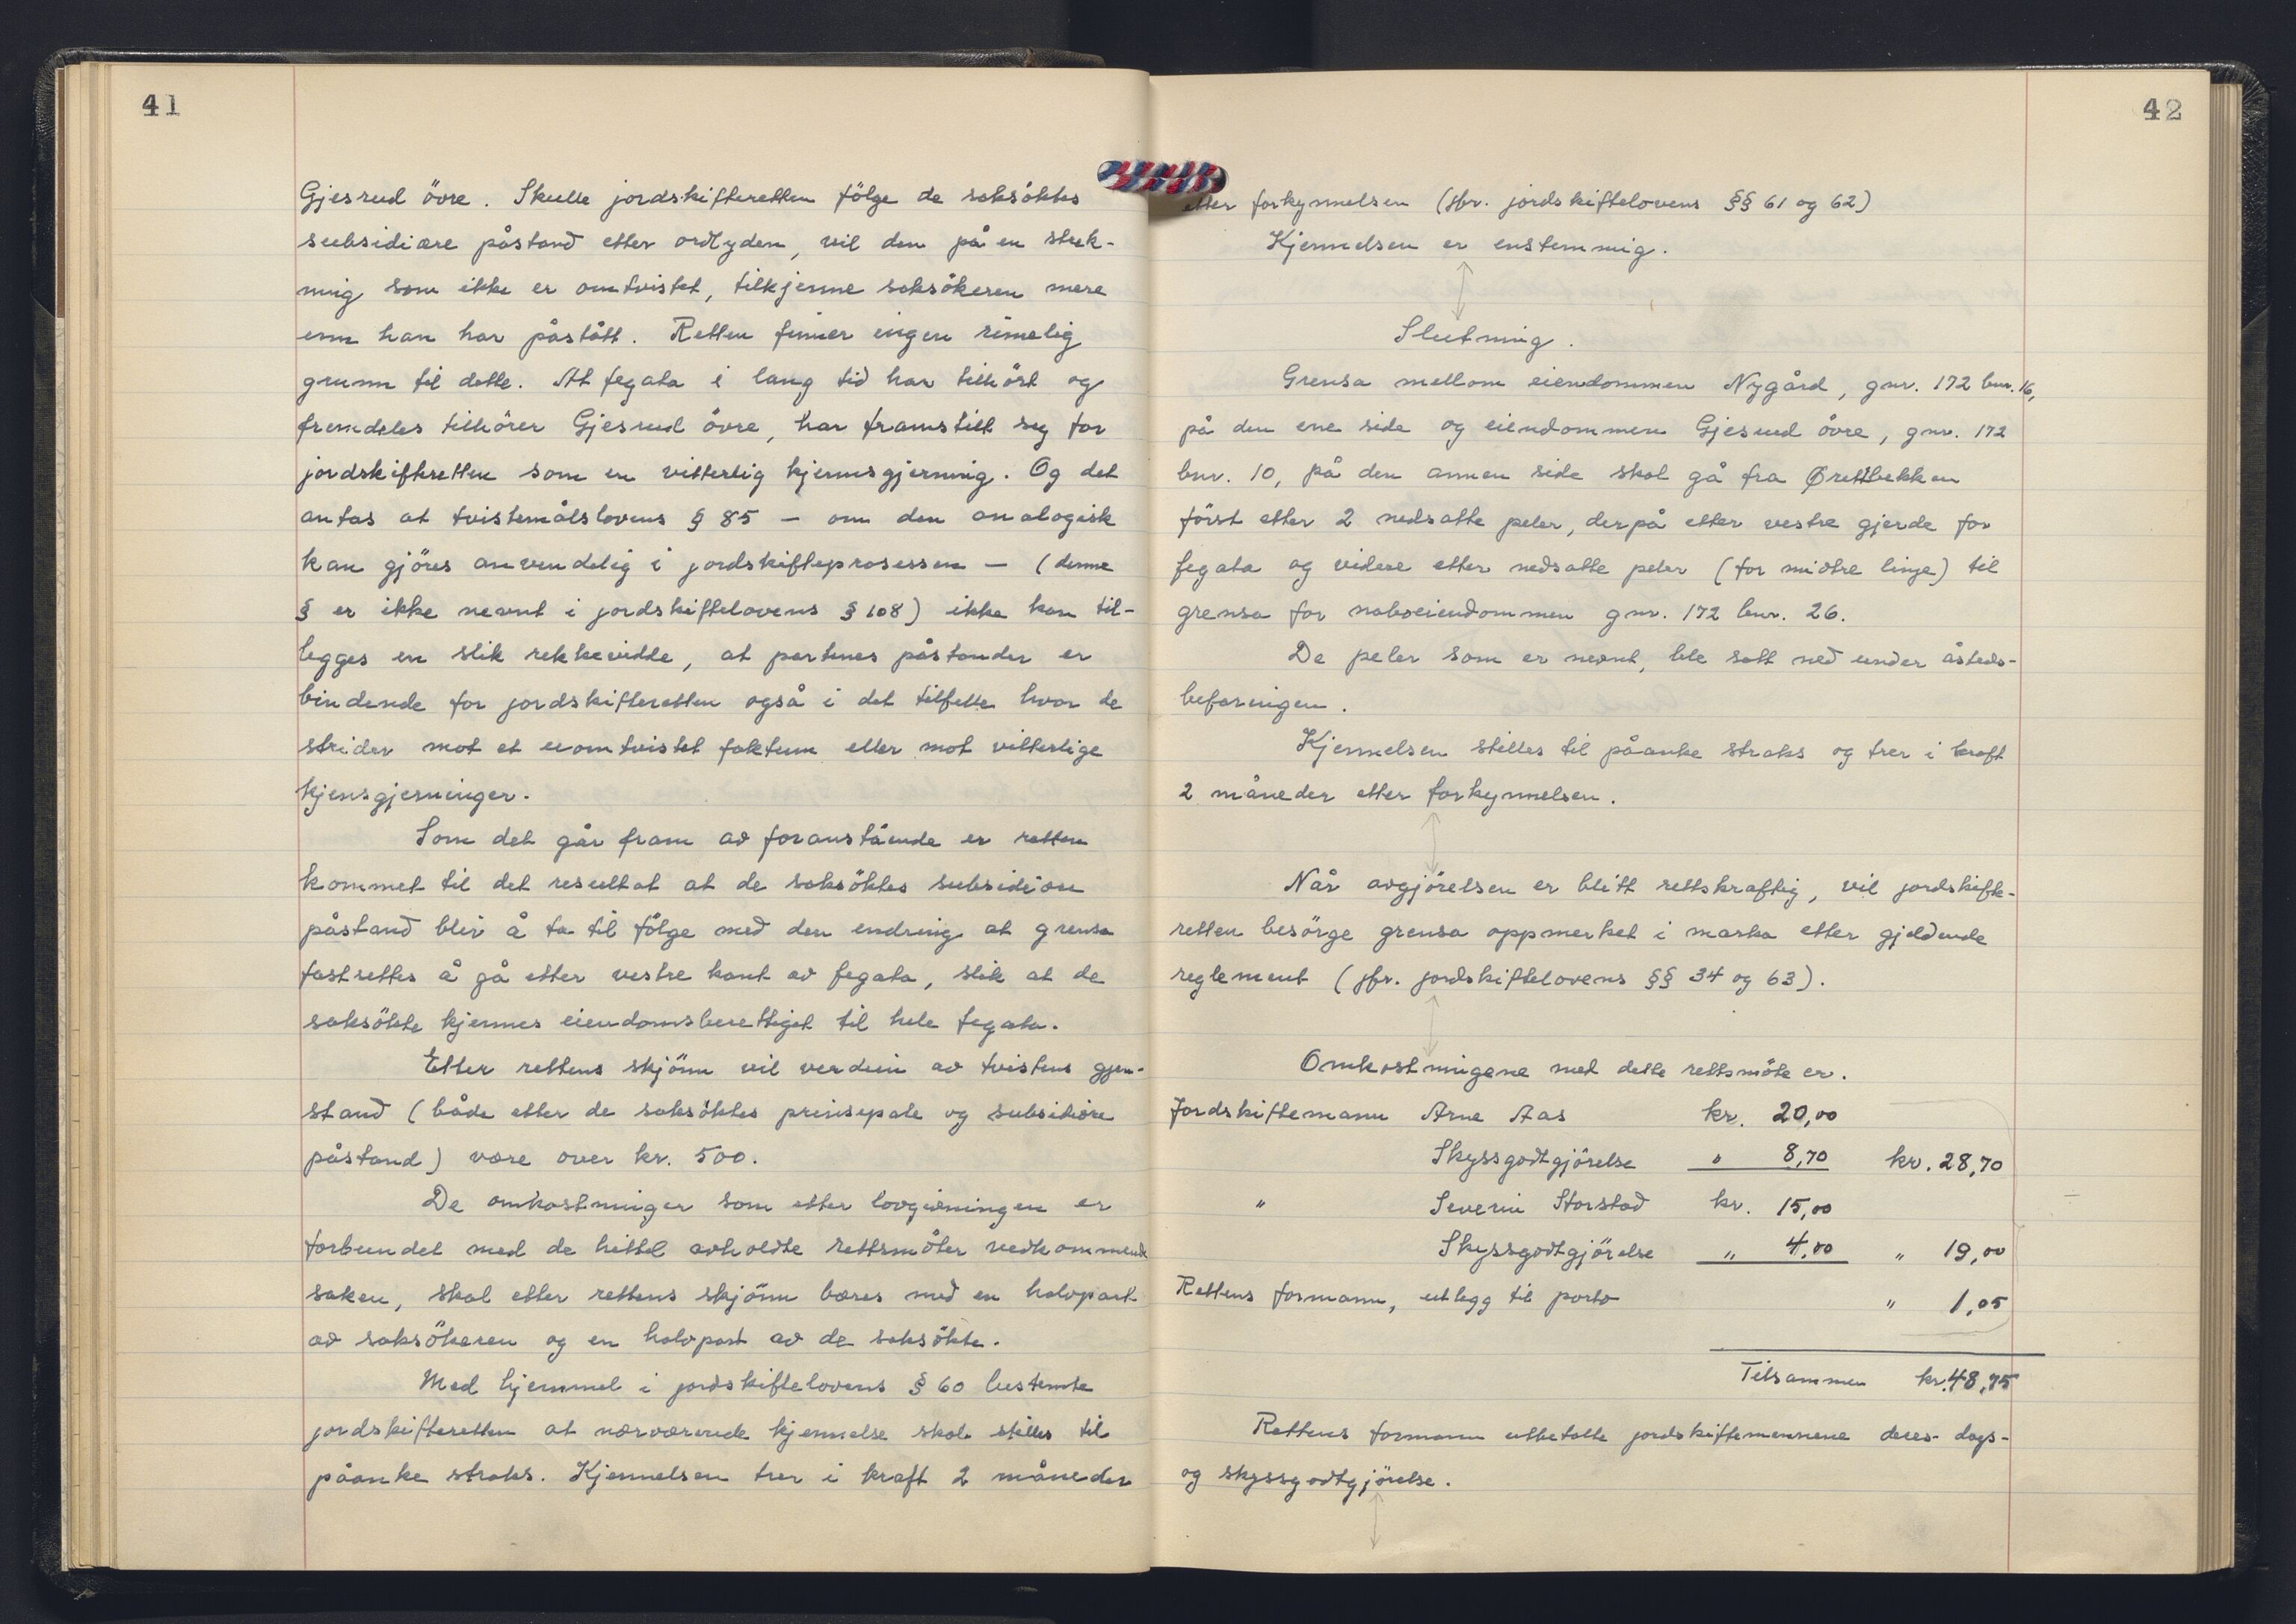 41
Gjesrud övre. Skulle jordskifteretten fölge de saksöktes
subsidiære påstand etter ordlyden, vil den på en strek-
ning som ikke er omtvistet, tilkjenne saksökeren mere
enn han har påstått. Retten finner ingen rimelig
grunn til dette. At fegata i lang tid har tilhört og
fremdeles tilhörer Gjesrud övre, har framstilt seg for
jordskifteretten som en vitterlig kjensgjerning. Og det
antas at tvistemålslovens § 85 – om den analogisk
kan gjöres anvendelig i jordskifteprosessen – (denne
§ er ikke nevnt i jordskiftelovens § 108) ikke kan til-
legges en slik rekkevidde, at partenes påstander er
bindende for jordskifteretten også i det tilfelle hvor de
strider mot et uomtvistet faktum eller mot vitterlige
kjensgjerninger.
Som det går fram av foranstående er retten
kommet til det resultat at de saksöktes subsidiære
påstand blir å ta til fölge med den endring at grensa
fastsettes å gå etter vestre kant av fegata, slik at de
saksökte kjennes eiendomsberettiget til hele fegata.
Etter rettens skjönn vil verdien av tvistens gjen-
stand (både etter de saksöktes prinsipale og subsidiære
påstand) være over kr. 500.
De omkostninger som etter lovgivningen er
forbundet med de hittil avholdte rettsmöter vedkommende
saken, skal etter rettens skjönn bæres med en halvpart
av saksökeren og en halvpart av de saksökte.
Med hjemmel i jordskiftelovens § 60 bestemte
jordskifteretten at nærværende kjennelse skal stilles til
påanke straks. Kjennelsen trer i kraft 2 måneder
42
etter forkynnelsen (jfr. jordskiftelovens §§ 61 og 62)
Kjennelsen er enstemmig.
Slutning.
Grensa mellom eiendommen Nygård, gnr. 172 bnr. 16,
på den ene side og eiendommen Gjesrud övre, gnr. 172
bnr. 10, på den annen side skal gå fra Ørettbekken
först etter 2 nedsatte peler, derpå etter vestre gjerde for
fegata og videre etter nedsatte peler (for midtre linje) til
grensa for naboeiendommen gnr. 172 bnr. 26.
De peler som er nevnt, ble satt ned under åsteds-
befaringen.
Kjennelsen stilles til påanke straks og trer i kraft
2 måneder etter forkynnelsen.
Når avgjörelsen er blitt rettskraftig, vil jordskifte-
retten besörge grensa oppmerket i marka etter gjeldende
reglement (jfr. jordskiftelovens §§ 34 og 63).
Omkostningene med dette rettsmöte er.
Jordskiftemann Arne Aas kr. 20,00
Skyssgodtgjörelse " 8,70 kr. 28,70
" Severin Storstad kr. 15,00
Skyssgodtgjörelse " 4,00 " 19,00
Rettens formann, utlegg til porto " 1,05
Tilsammen kr. 48,75
Rettens formann utbetalte jordskiftemennene deres dags-
og skyssgodtgjörelse.